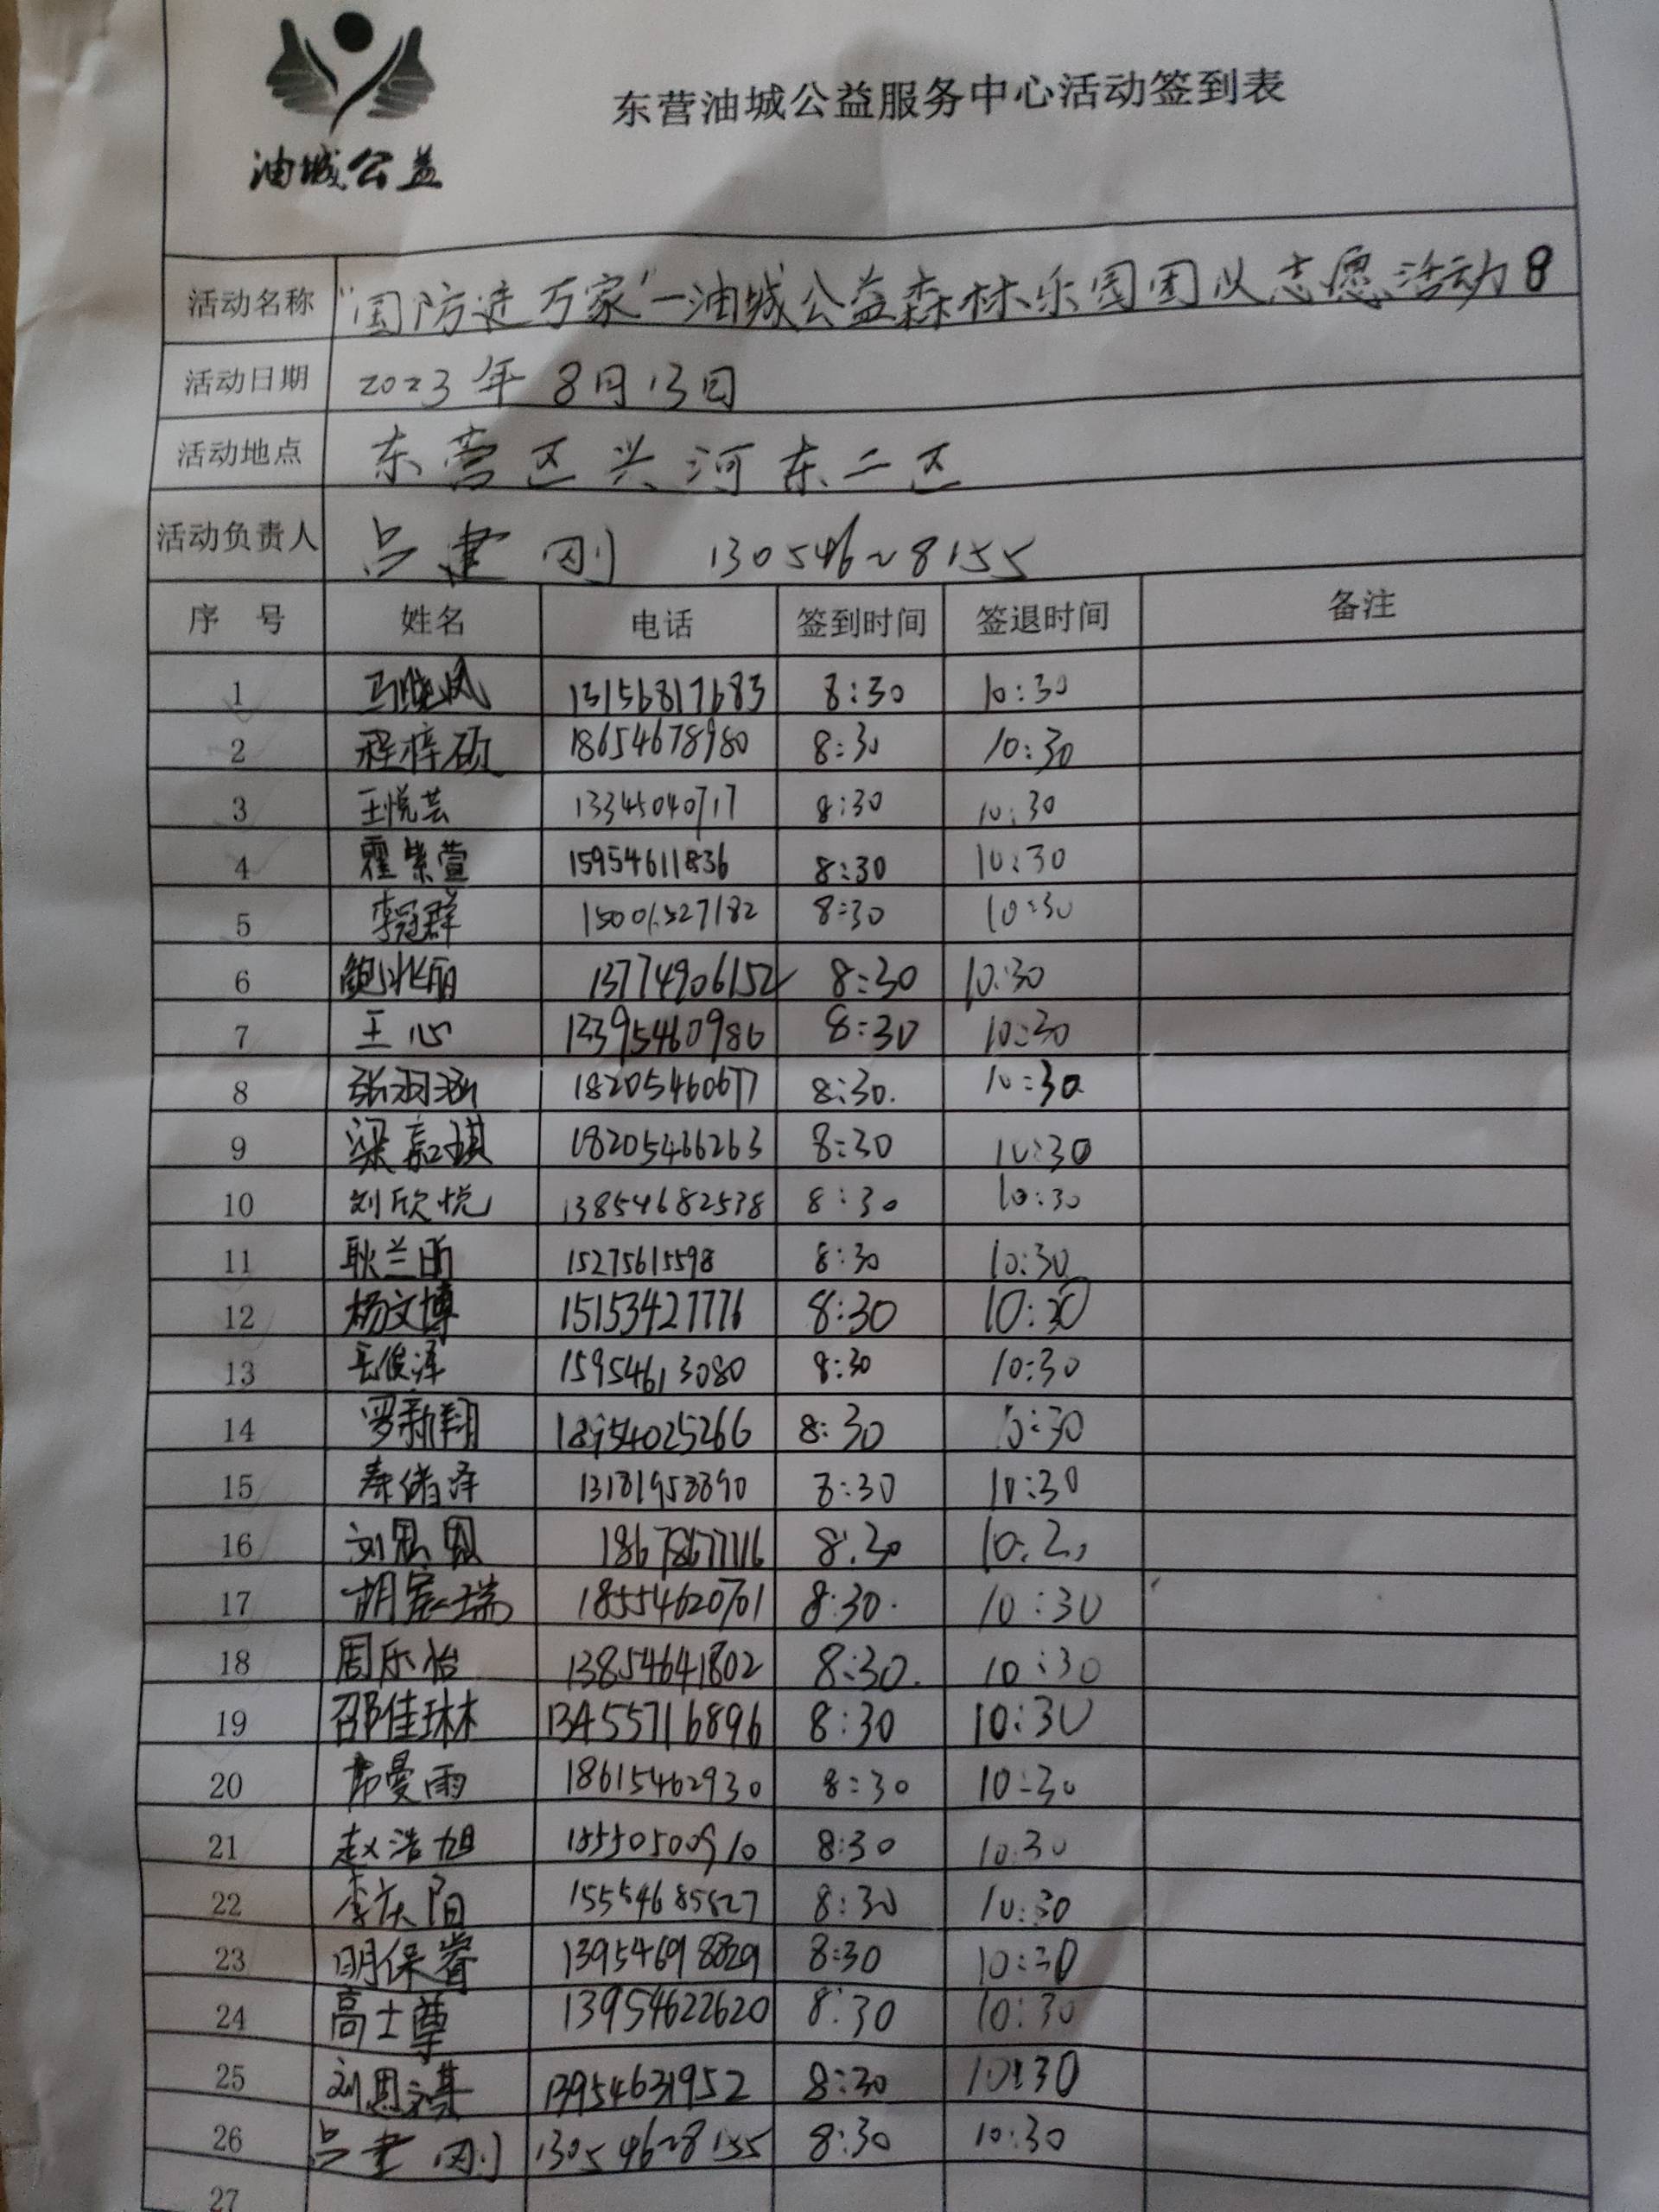 油城公益
东营油城公益服务中心活动签到表
活动名称 "国防进万家"—油城公益森林乐园团队志愿活动8
活动日期 2023年8月13日
活动地点 东营区兴河东二区
活动负责人 吕建刚 13054628155
序号 姓名 电话 签到时间 签退时间 备注
1 马晓凤 13156817683 8:30 10:30
2 程梓硕 18654678980 8:30 10:30
3 王悦芸 13345040717 8:30 10:30
4 霍紫萱 15954611836 8:30 10:30
5 李冠群 8:30 10:30
6 13774906152 8:30 10:30
7 王心 13395460986 8:30 10:30
8 张羽涵 18205460677 8:30 10:30
9 梁嘉琪 18205466263 8:30 10:30
10 刘欣悦 13854682538 8:30 10:30
11 耿兰 15275615598 8:30 10:30
12 杨文博 15153427776 8:30 10:30
13 岳俊泽 15954613080 8:30 10:30
14 罗新翔 18954025266 8:30 10:30
15 秦绪泽 8:30 10:30
16 刘恩 18678677116 8:30
17 胡宸瑞 18554620701 8:30 10:30
18 周乐怡 13854641802 8:30 10:30
19 邵佳琳 13455716896 8:30 10:30
20 曼雨 18615462930 8:30 10:30
21 赵浩旭 8:30 10:30
22 李庆阳 8:30 10:30
23 明保睿 13954698829 8:30 10:30
24 高士尊 13954622620 8:30 10:30
25 刘恩祺 13954631952 8:30 10:30
26 吕建刚 13054628155 8:30 10:30
27